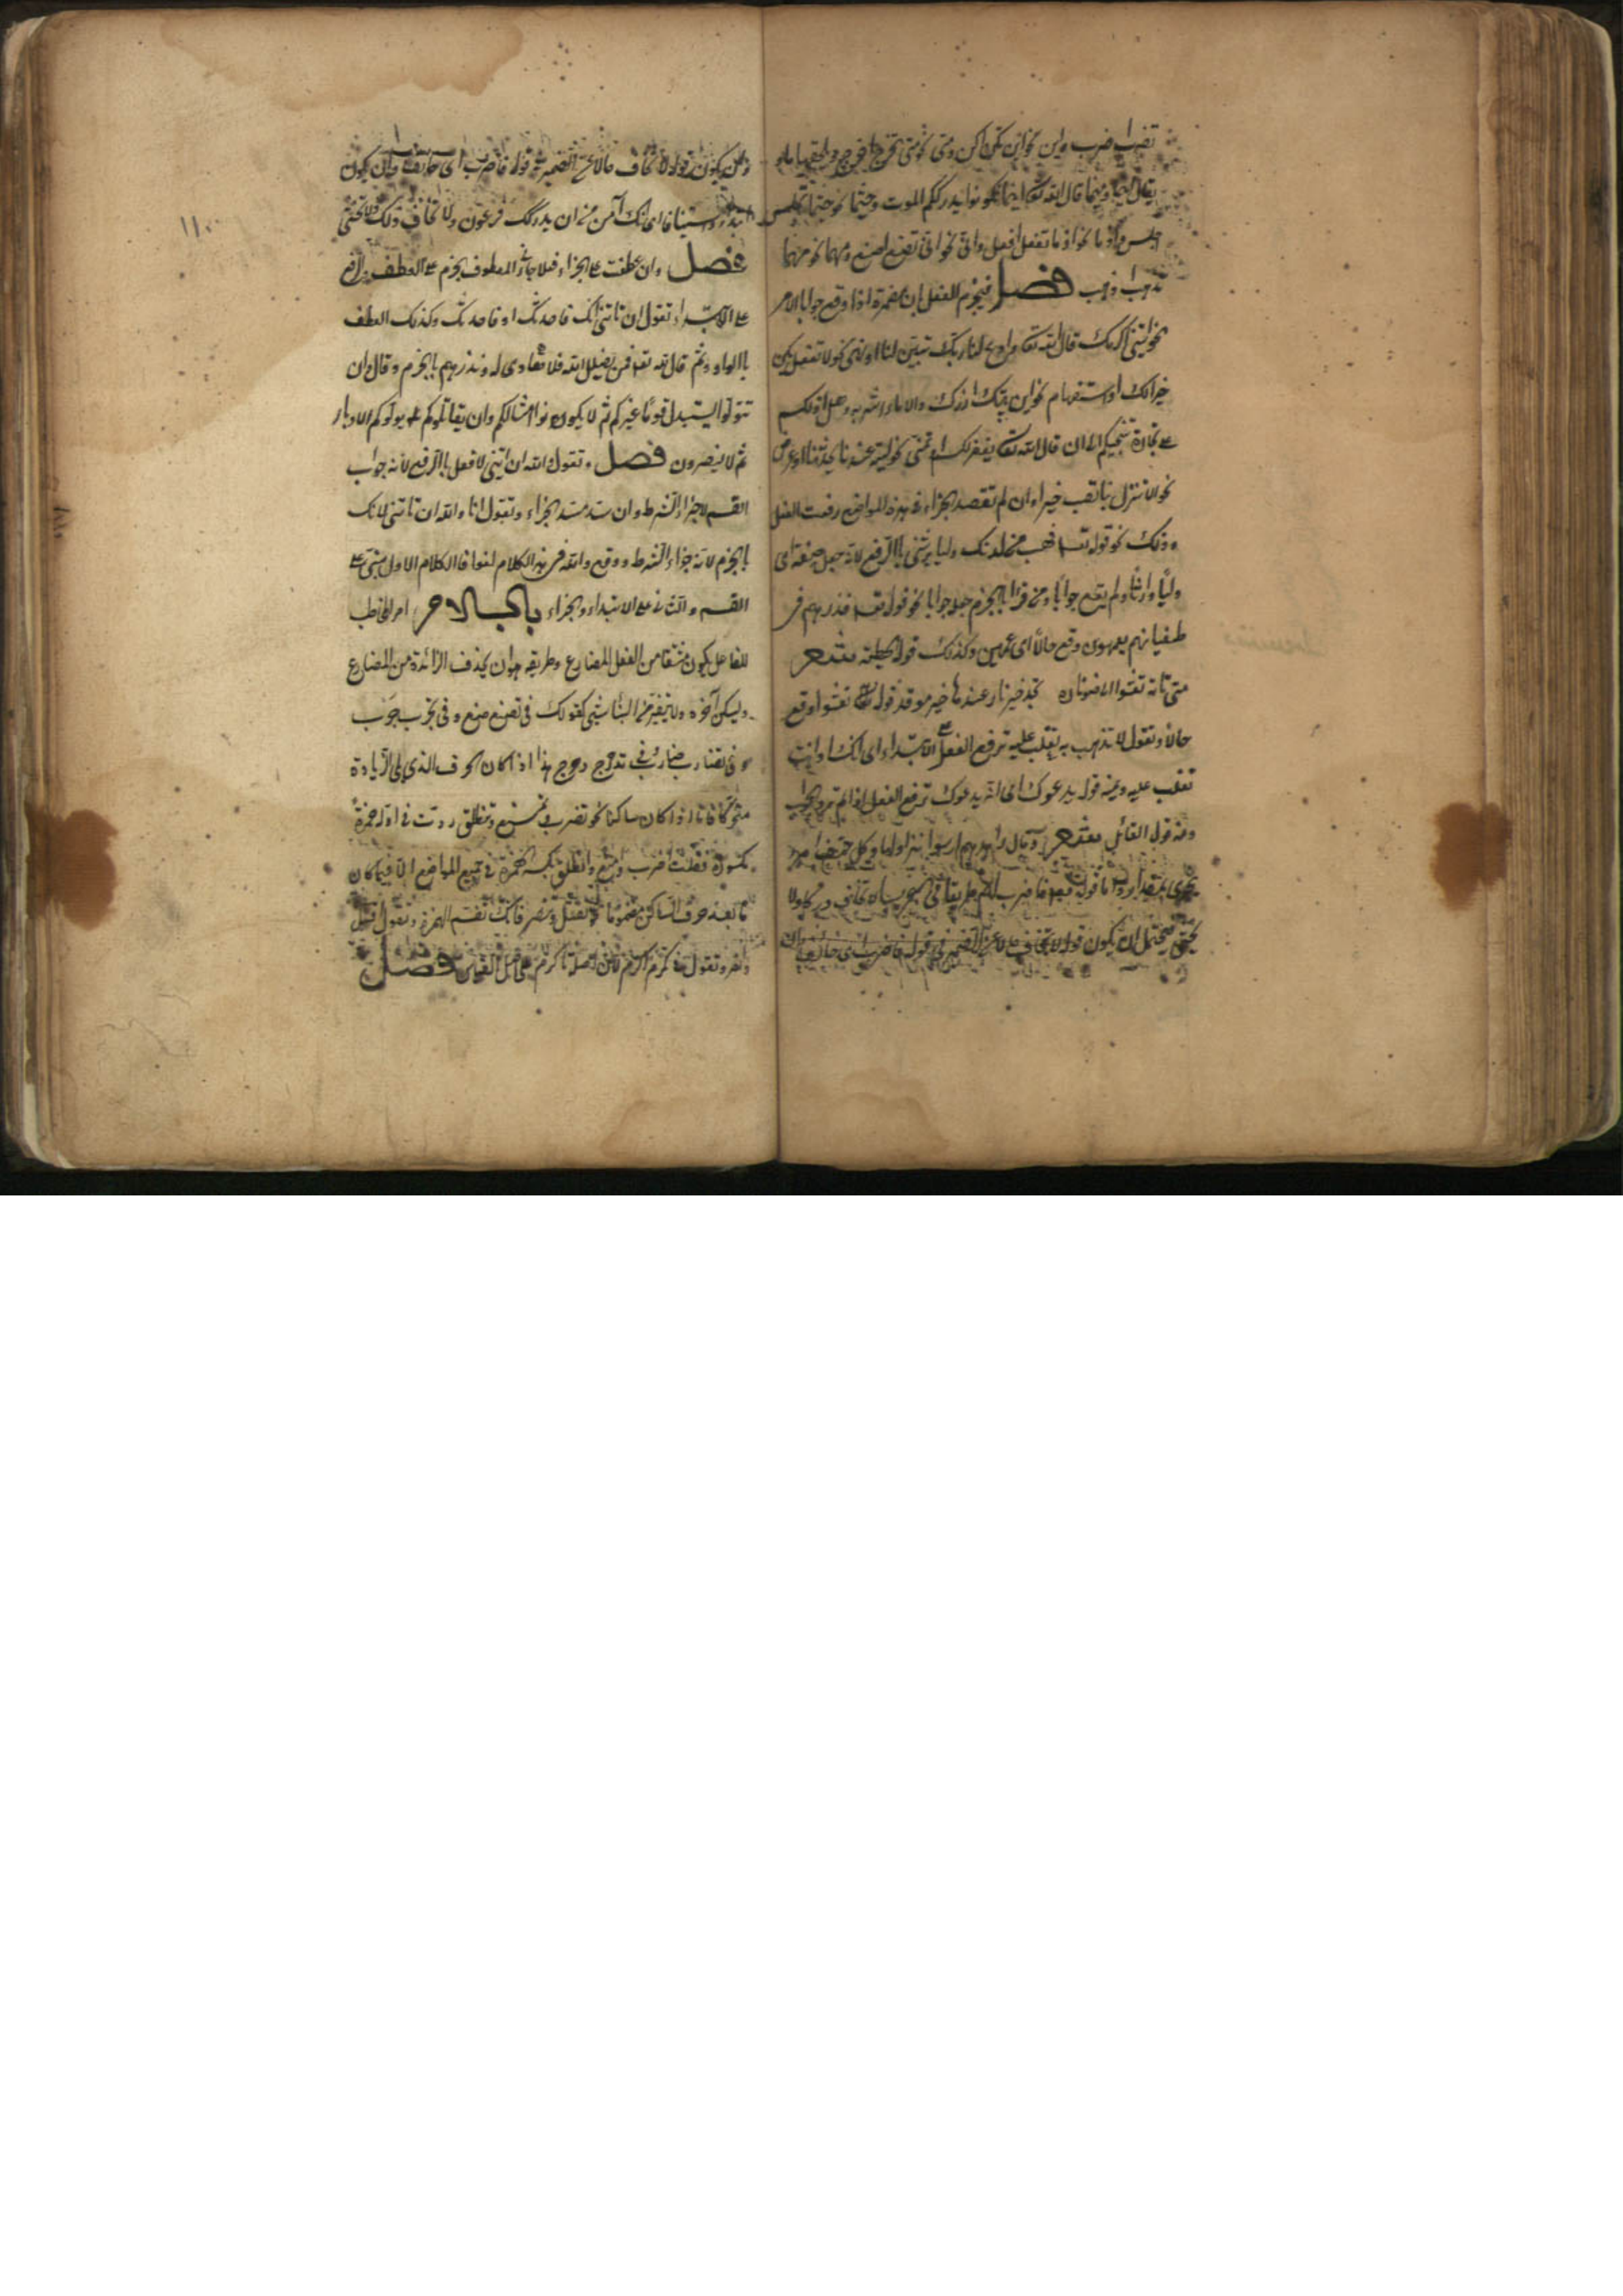 تضرب اضرب واين نحو اين تكن اكن ومتى نحو متى تخرج اخرج ويلحقهما ما
يقال اينما ومتى ما قال الله تعا اينما تكونوا يدرككم الموت وحيثما نحو حيثما تجلس
اجلس واذما نحو اذما تفعل افعل وانّى نحو انّى تصنع اصنع ومهما نحو مهما
تذهب اذهب فصل فيجزم الفعل بان مضمرة اذا وقع جوابا لامر
نحو ايتنى اكرمك قال الله تعا ادع لنا ربك يبيّن لنا او نهى نحو لا تفعل يكن
خيرا لك او استفهام نحو اين بيتك ازرك والا ماء اشربه وهل ادلكم
على تجارة تنجيكم الى ان قال الله تعا يغفر لكم او تمنّى نحو ليته عندنا يحدثنا او عرض
نحو الا تنزل بنا تصب خيرا وان لم تقصد الجزاء فى هذه المواضع رفعت الفعل
وذلك نحو قوله تعا فهب لى من لدنك وليا يرثنى بالرفع لانه جعل صفة اى
وليّا وارثا ولم يقع جوابا ومن قرا بالجزم جعله جوابا نحو قوله تعا فذرهم فى
طغيانهم يعمهون وقع حالا اى عمهين وكذلك قول الحطيئة شعر
متى تاته تعشوا الى ضوء ناره تجد خير نار عندها خير موقد قوله تعشوا وقع
حالا وتقول لا تذهب به تغلب عليه ترفع الفعل على الابتداء اى انك او انت
تغلب عليه ومنه قوله يدعوك اى انه يدعوك ترفع الفعل اذا لم ترد الجواب
ومنه قول القائل شعر وقال رائدهم ارسوا نزاولها وكل حتف امرء
يجرى بمقدار واما قوله تعا فاضرب لهم طريقا فى البحر يبسا لا تخاف دركا ولا
تخشى فيحتمل ان يكون قوله لا تخاف حالا عن الضمير فى قوله فاضرب اى خائف وان
وان يكون قوله لا تخاف حالا عن الضمير فى قوله فاضرب اى خائف وان يكون
ابتداء واستينافا اى انك آمن من ان يدركك فرعون ولا تخاف ذلك ولا تخشى
فصل وان عطفت على الجزاء فعلا جاز فى المعطوف الجزم على العطف والرفع
على الابتداء تقول ان تاتنى آتك فاحدثك او فاحدثك وكذلك العطف
بالواو وثم قال الله تعا من يضلل الله فلا هادى له ونذرهم بالجزم وقال وان
تتولوا يستبدل قوما غيركم ثم لا يكونوا امثالكم وان يقاتلوكم يولوكم الادبار
ثم لا ينصرون فصل وتقول والله ان اتيتنى لا فعل بالرفع لانه جواب
القسم لا جزاء الشرط وان سدّ مسدّ الجزاء وتقول انا والله ان تاتنى لا آتك
بالجزم لانه جزاء الشرط ووقع والله فى هذا الكلام لغوا فالكلام الاول مبنى على
القسم والثانى على الابتداء والجزاء باب الامر امر المخاطب
للفاعل يكون مشتقا من الفعل المضارع وطريقه ان يحذف الزائدة من المضارع
ويسكن آخره ولا يتغير من البناء شيئ كقولك فى تضع ضع وفى تجرب جرب
وفى تضارب ضارب وفى تدحرج دحرج هذا اذا كان الحرف الذى يلى الزيادة
متحركا فاذا كان ساكنا نحو تضرب وتمنع وتنطلق زدت فى اوله همزة
مكسورة فقلت اضرب وامنع وانطلق بكسر الهمزة فى جميع المواضع الا فيما كان
ما بعد حرف الساكن مضموما نحو تقتل وتنصر فانك تضم الهمزة وتقول اقتل
وانصر وتقول فى تكرم اكرم لان اصله تاكرم على اصل القياس فصل
١١٠